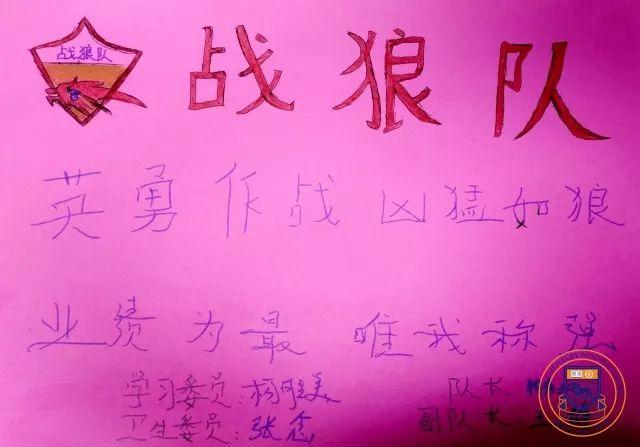 战狼队
战狼队
英勇作战 凶猛如狼
业绩为最 唯我称强
学习委员:杨胜美
队长
卫生委员:张念
副队长:王